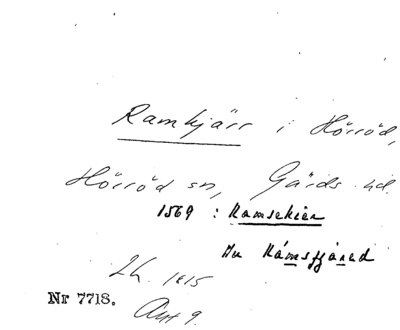 Ramkjärr i Hörröd,
Hörröd sn, Gärds hd.
1569 : Ramsekier
Nu Rámsjjáred
Lh. 1815
Nr 7718.
Akt 9.